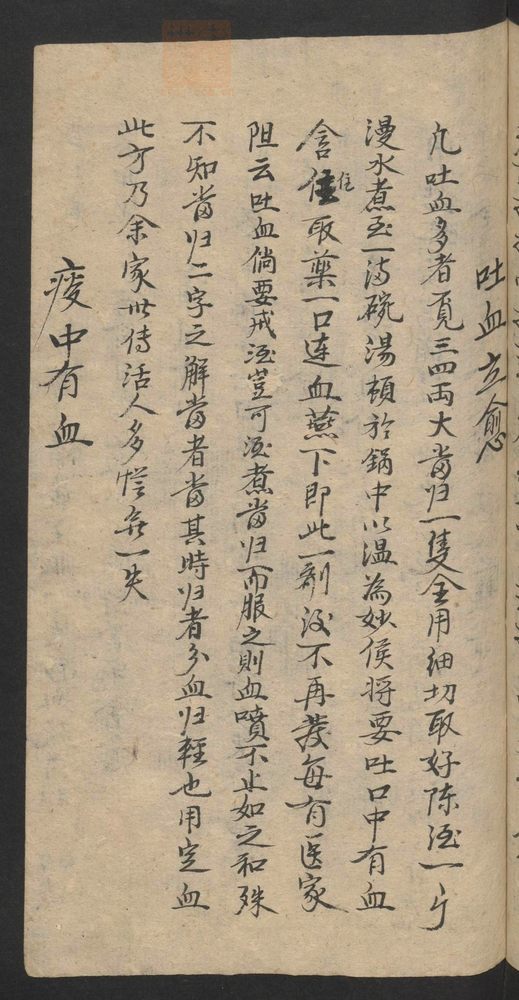 吐血立愈
凡吐血多者覓三四両大當归一隻全用细切取好陈酒一斤
漫水煮至一满碗湯頓於鍋中以温為妙侯将要吐口中有血
含住取藥一口连血燕下即此一剤後不再发每有医家
阻云吐血倘要戒酒豈可酒煮當归而服之則血噴不止如之和殊
不知當归二字之解當者當其時归者分血归輕也用定血
此方乃余家世传活人多恠無一失
痰中有血